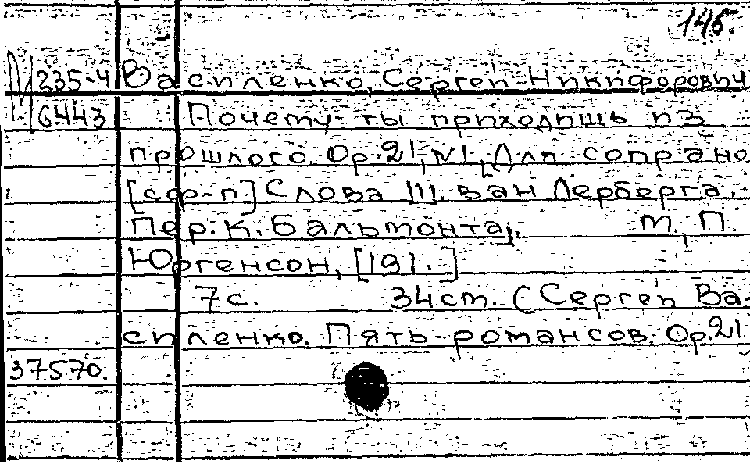 146.
М 235-4 Василенко, Сергей Никифорович
6443 Почему ты приходишь из
прошлого. Op.21, №1, Для сопрано
[с ф-п] Слова Ш. ван Лерберга.
Пер. К. Бальмонта. М., П.
Юргенсон, [191.]
7 с. 34 cm. (Сергей Ва-
силенко. Пять романсов. Op.21
37570.